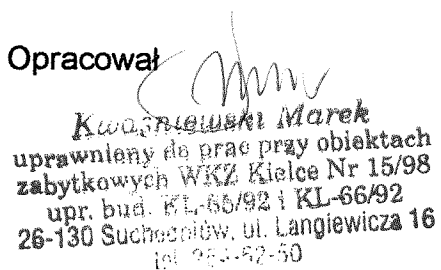 Opracował
Kwaśniewski Marek
uprawniony do prac przy obiektach
zabytkowych WKZ Kielce Nr 15/98
upr. bud. KL-65/92 i KL-66/92
26-130 Suchedniów, ul. Langiewicza 16
tel.